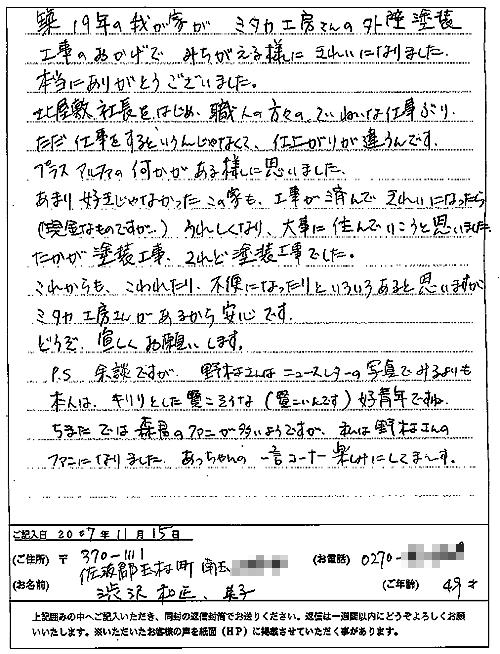 築19年の我が家が ミタカ工房さんの外壁塗装
工事のおかげで みちがえる様に きれいになりました.
本当にありがとうございました。
北屋敷社長をはじめ、職人の方々の、ていねいな仕事ぶり.
ただ仕事をするというんじゃなくて、仕上がりが違うんです。
プラスアルファの何かがある様に思いました。
あまり好きじゃなかったこの家も、工事が済んで きれいになったら
(現金なものですが…) うれしくなり、大事に住んでいこうと思いました.
たかが塗装工事、されど塗装工事でした。
これからも、こわれたり、不便になったりといろいろあると思いますが
ミタカ工房さんがあるから安心です.
どうぞ、宜しくお願いします。
P.S 余談ですが、野村さんは ニュースレターの写真でみるよりも
本人は、キリリとした賢こそうな(賢こいんです)好青年ですね.
ちまたでは森君のファンが多いようですが、私は野村さんの
ファンになりました. あっちゃんの一言コーナー楽しみにしてまーす.
ご記入日 2007年 11月 15日
(ご住所) 〒 370-1111
佐波郡玉村町 南玉
(お電話) 0270-
(お名前) 渋沢 和正、英子
(ご年齢) 49才
上記囲みの中へご記入いただき、同封の返信封筒でお送りください。返信は一週間以内にどうぞよろしくお願
いいたします。※いただいたお客様の声を紙面(HP)に掲載させていただく事があります。